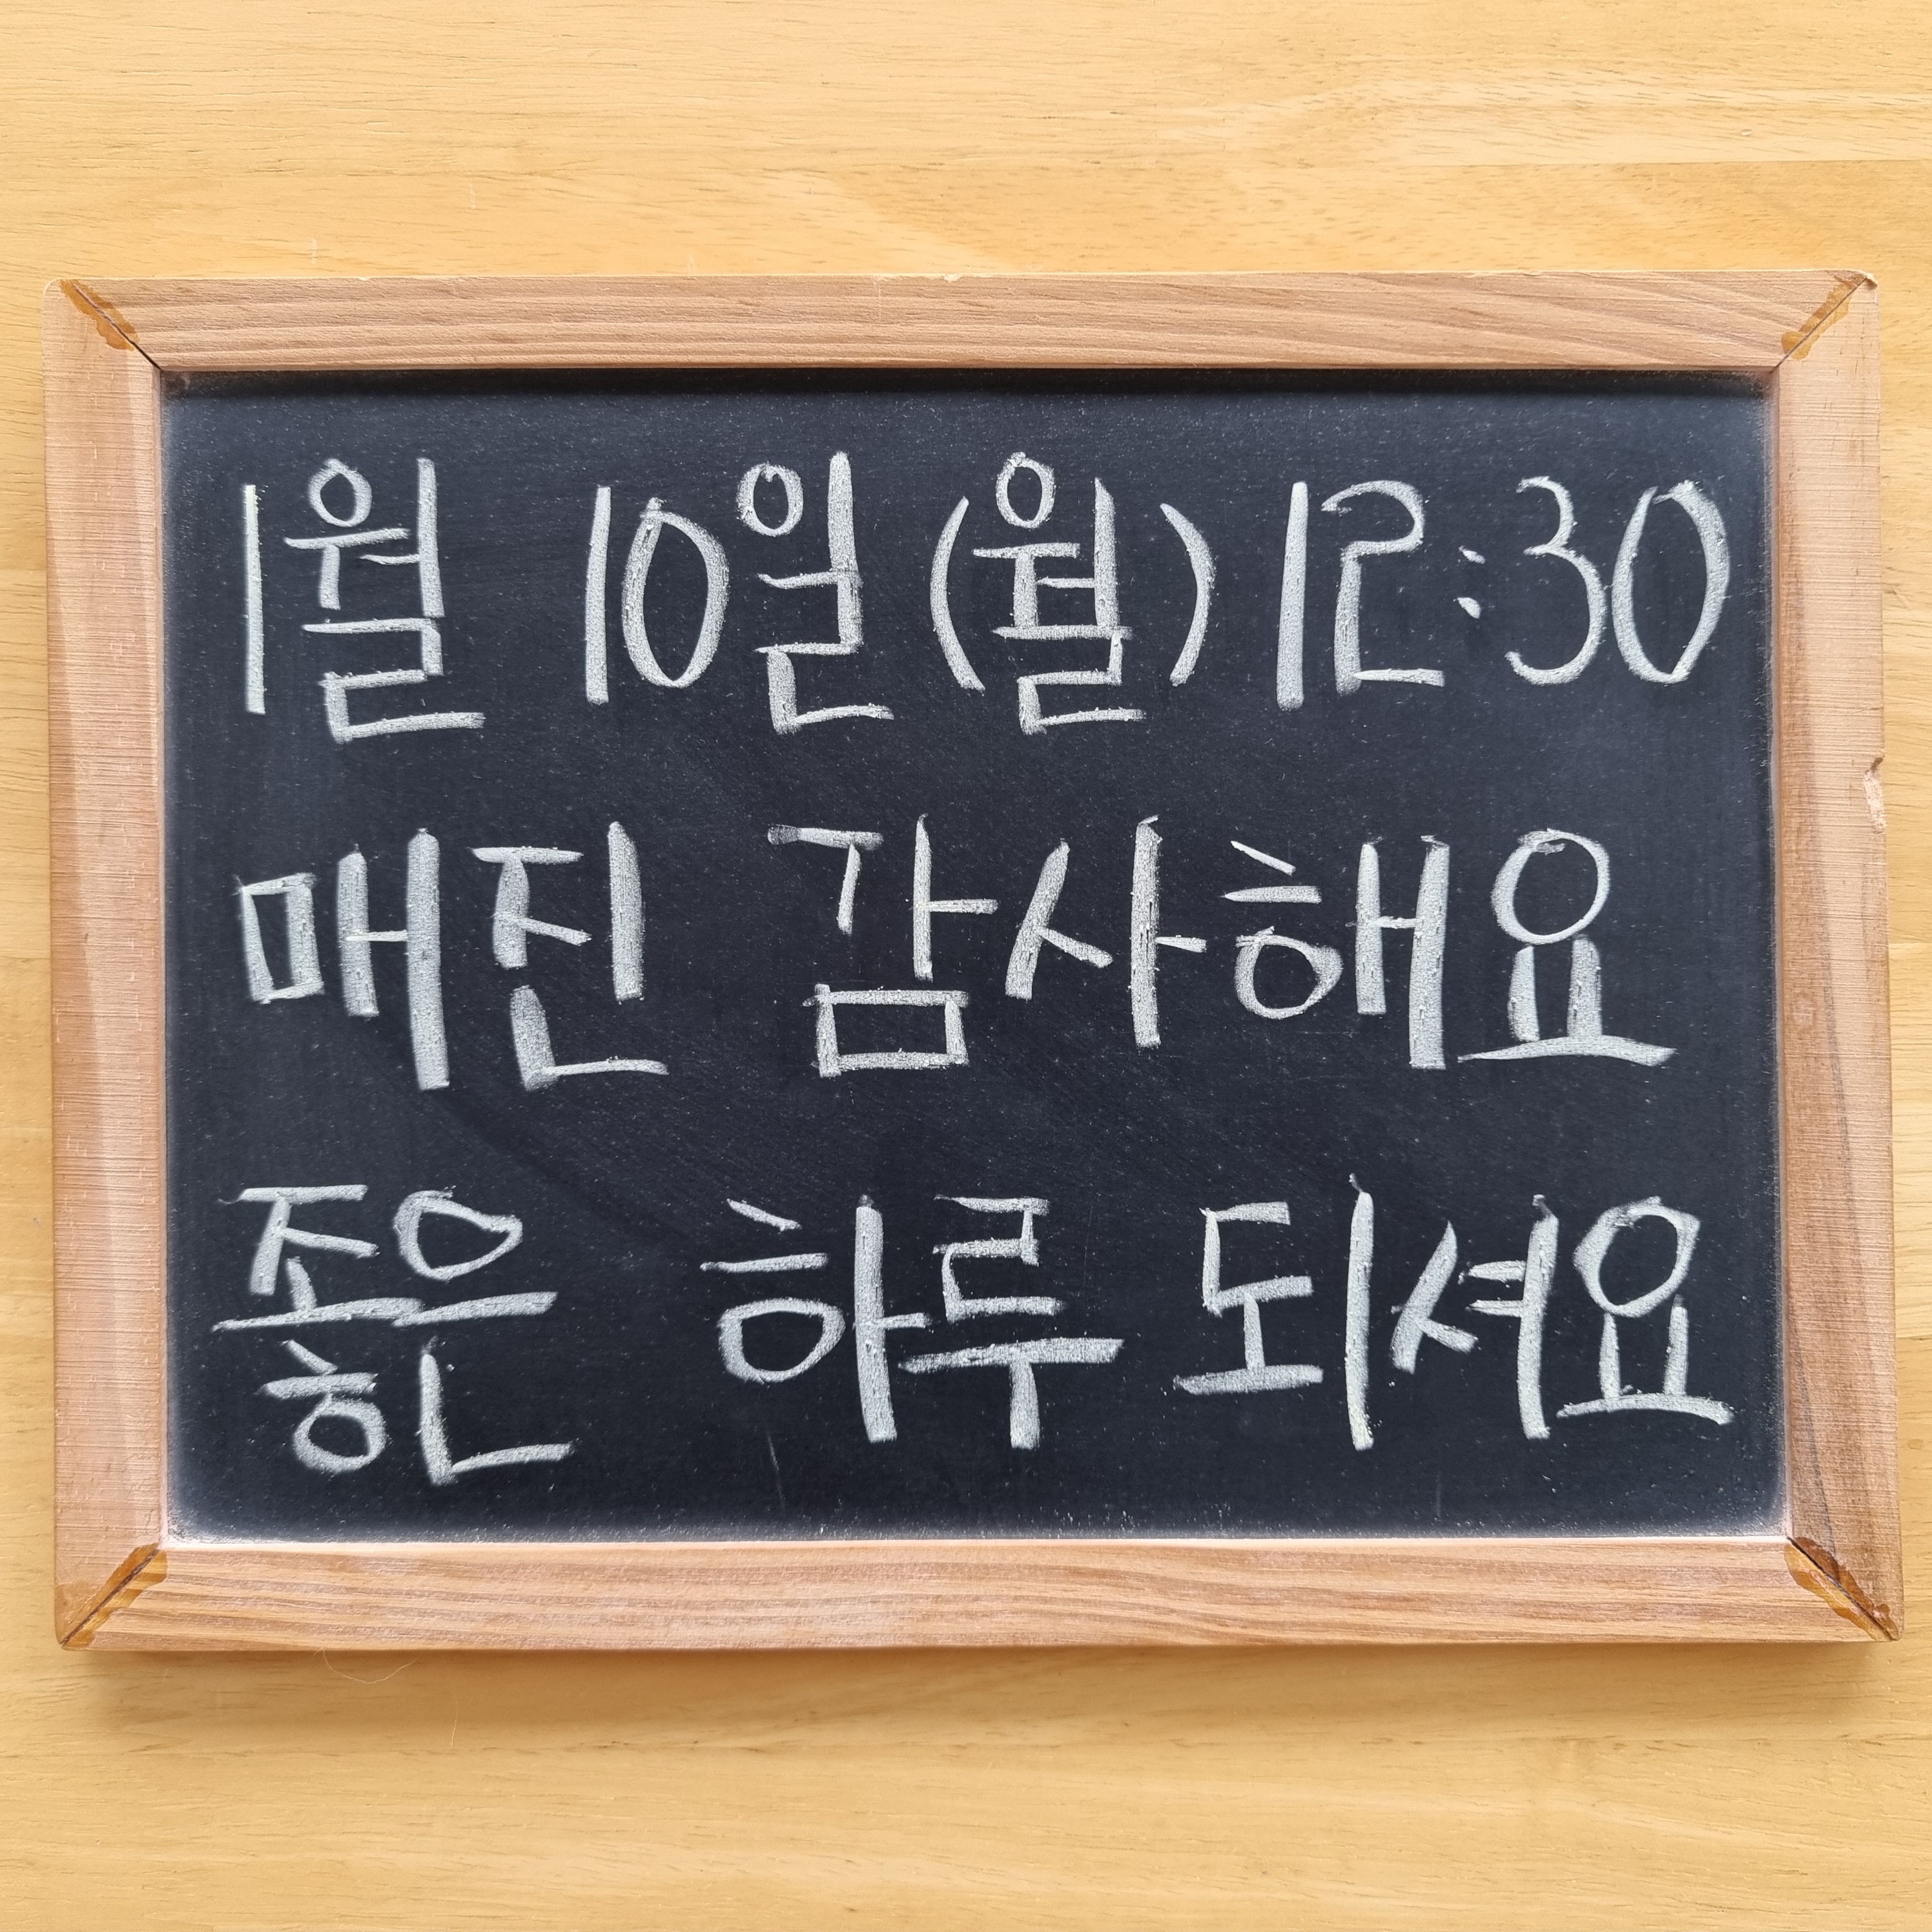 1월 10일(월) 12:30
매진 감사해요
좋은 하루 되셔요